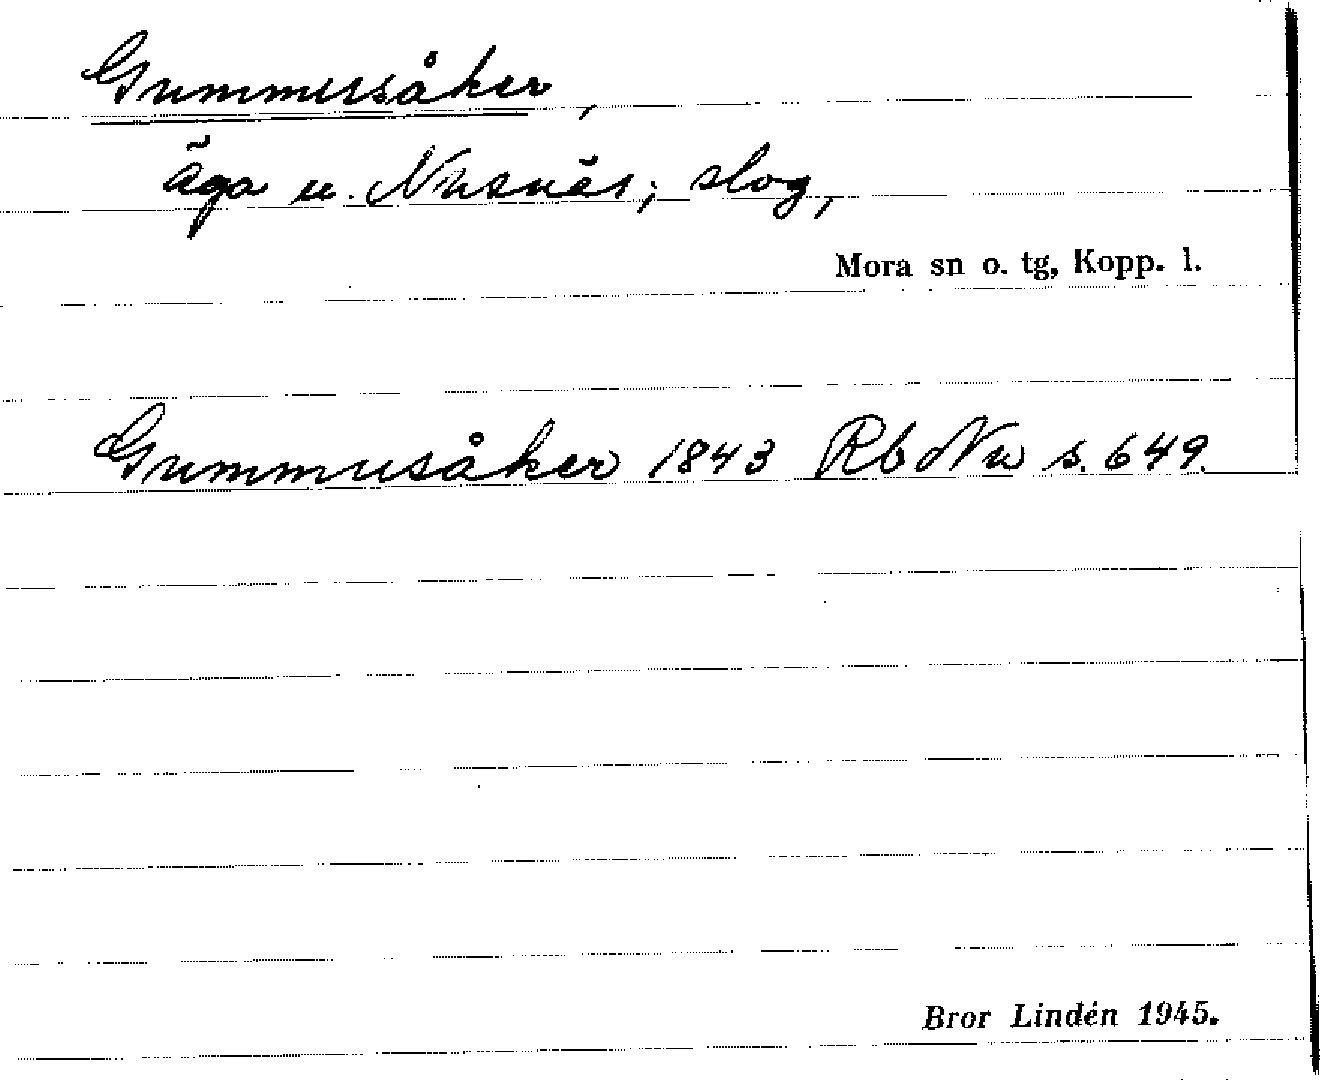 Gummusåker,
äga u. Nusnäs; slog,
Mora sn o. tg, Kopp. l.
Gummusåker 1843 Rb Nu s. 649.
Bror Lindén 1945.